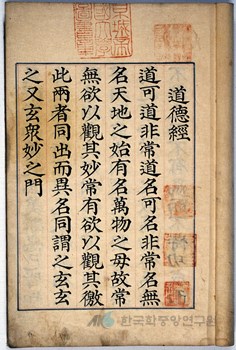 京城帝
國大學
圖書章
道德經
道可道非常道名可名非常名無
名天地之始有名萬物之母故常
無欲以觀其妙常有欲以觀其徼
此兩者同出而異名同謂之玄玄
之又玄衆妙之門
한국학중앙연구원